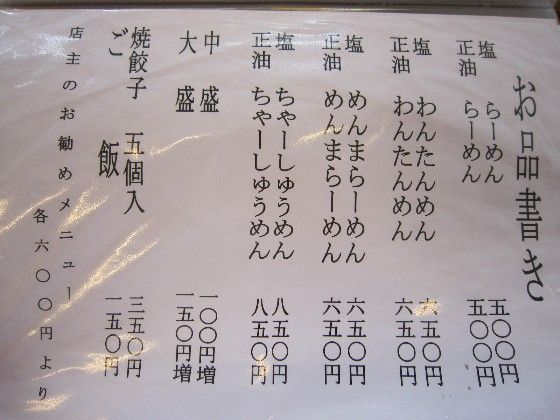 お品書き
塩 らーめん 五〇〇円
正油 らーめん 五〇〇円
塩 わんたんめん 六五〇円
正油 わんたんめん 六五〇円
塩 めんまらーめん 六五〇円
正油 めんまらーめん 六五〇円
塩 ちゃーしゅうめん 八五〇円
正油 ちゃーしゅうめん 八五〇円
中盛 一〇〇円増
大盛 一五〇円増
焼餃子 五個入 三五〇円
ご飯 一五〇円
店主のお勧めメニュー 各六〇〇円より